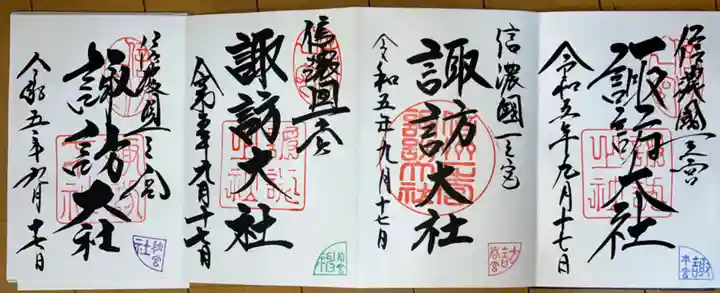 信濃國一之宮
諏訪大社
令和五年九月十七日
本宮
信濃國一之宮
諏訪大社
令和五年九月十七日
前宮
信濃國一之宮
諏訪大社
令和五年九月十七日
信濃國一之宮
諏訪大社
令和五年九月十七日
秋宮
社